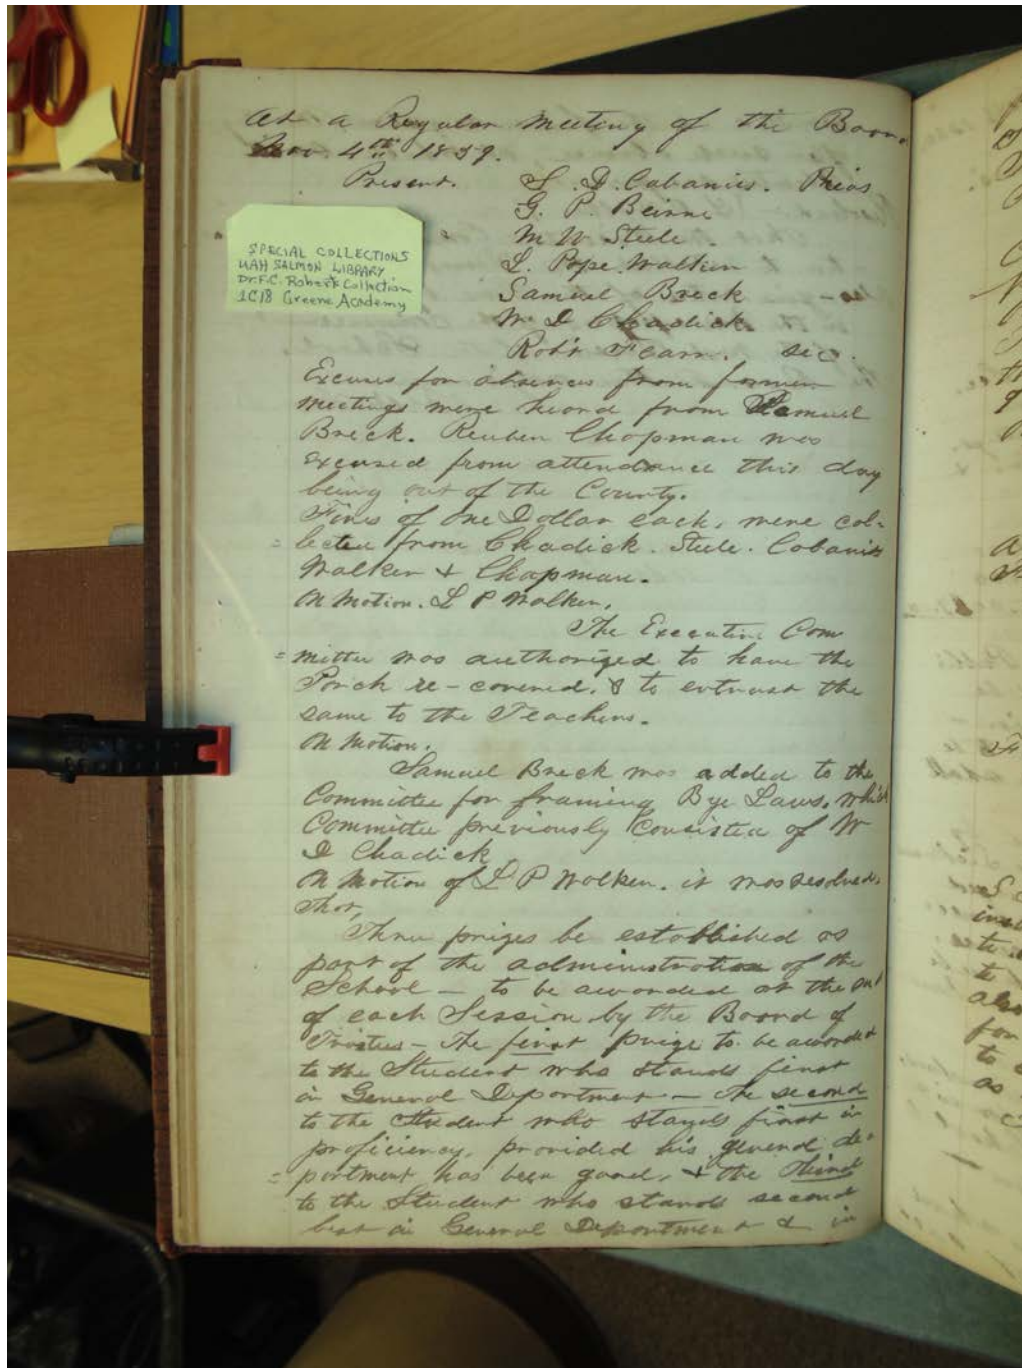 At a Regular Meeting of the Board
Nov. 4th 1859.
Present. S. D. Cabaniss. Presd
G. P. Beirne
M W Steele.
L. Pope Walker
Samuel Breck
W. D Chadick
Robt Fearn. sec.
SPECIAL COLLECTIONS
UAH SALMON LIBRARY
Dr. F.C. Roberts Collection
1C18 Greene Academy
Excuses for absences from former
meetings were heard from Samuel
Breck. Reuben Chapman was
excused from attendance this day
being out of the County.
Fines of One Dollar each, were col-
=lected from Chadick. Steele. Cabaniss
Walker & Chapman.
On Motion. L P Walker,
The Executive Com
=mittee was authorized to have the
Porch re-covered. & to entrust the
same to the Teachers.
On Motion.
Samuel Breck was added to the
Committee for framing Bye Laws, which
Committee previously consisted of W
D Chadick
On Motion of L P Walker. it was resolved,
That,
Three prizes be established as
part of the administration of the
School — to be awarded at the end
of each Session by the Board of
Trustees — The first prize to be awarded
to the Student who stands first
in General Deportment — the second
to the Student who stands first in
proficiency, provided his general de-
=portment has been good, & the third
to the Student who stands second
best in General Deportment & in